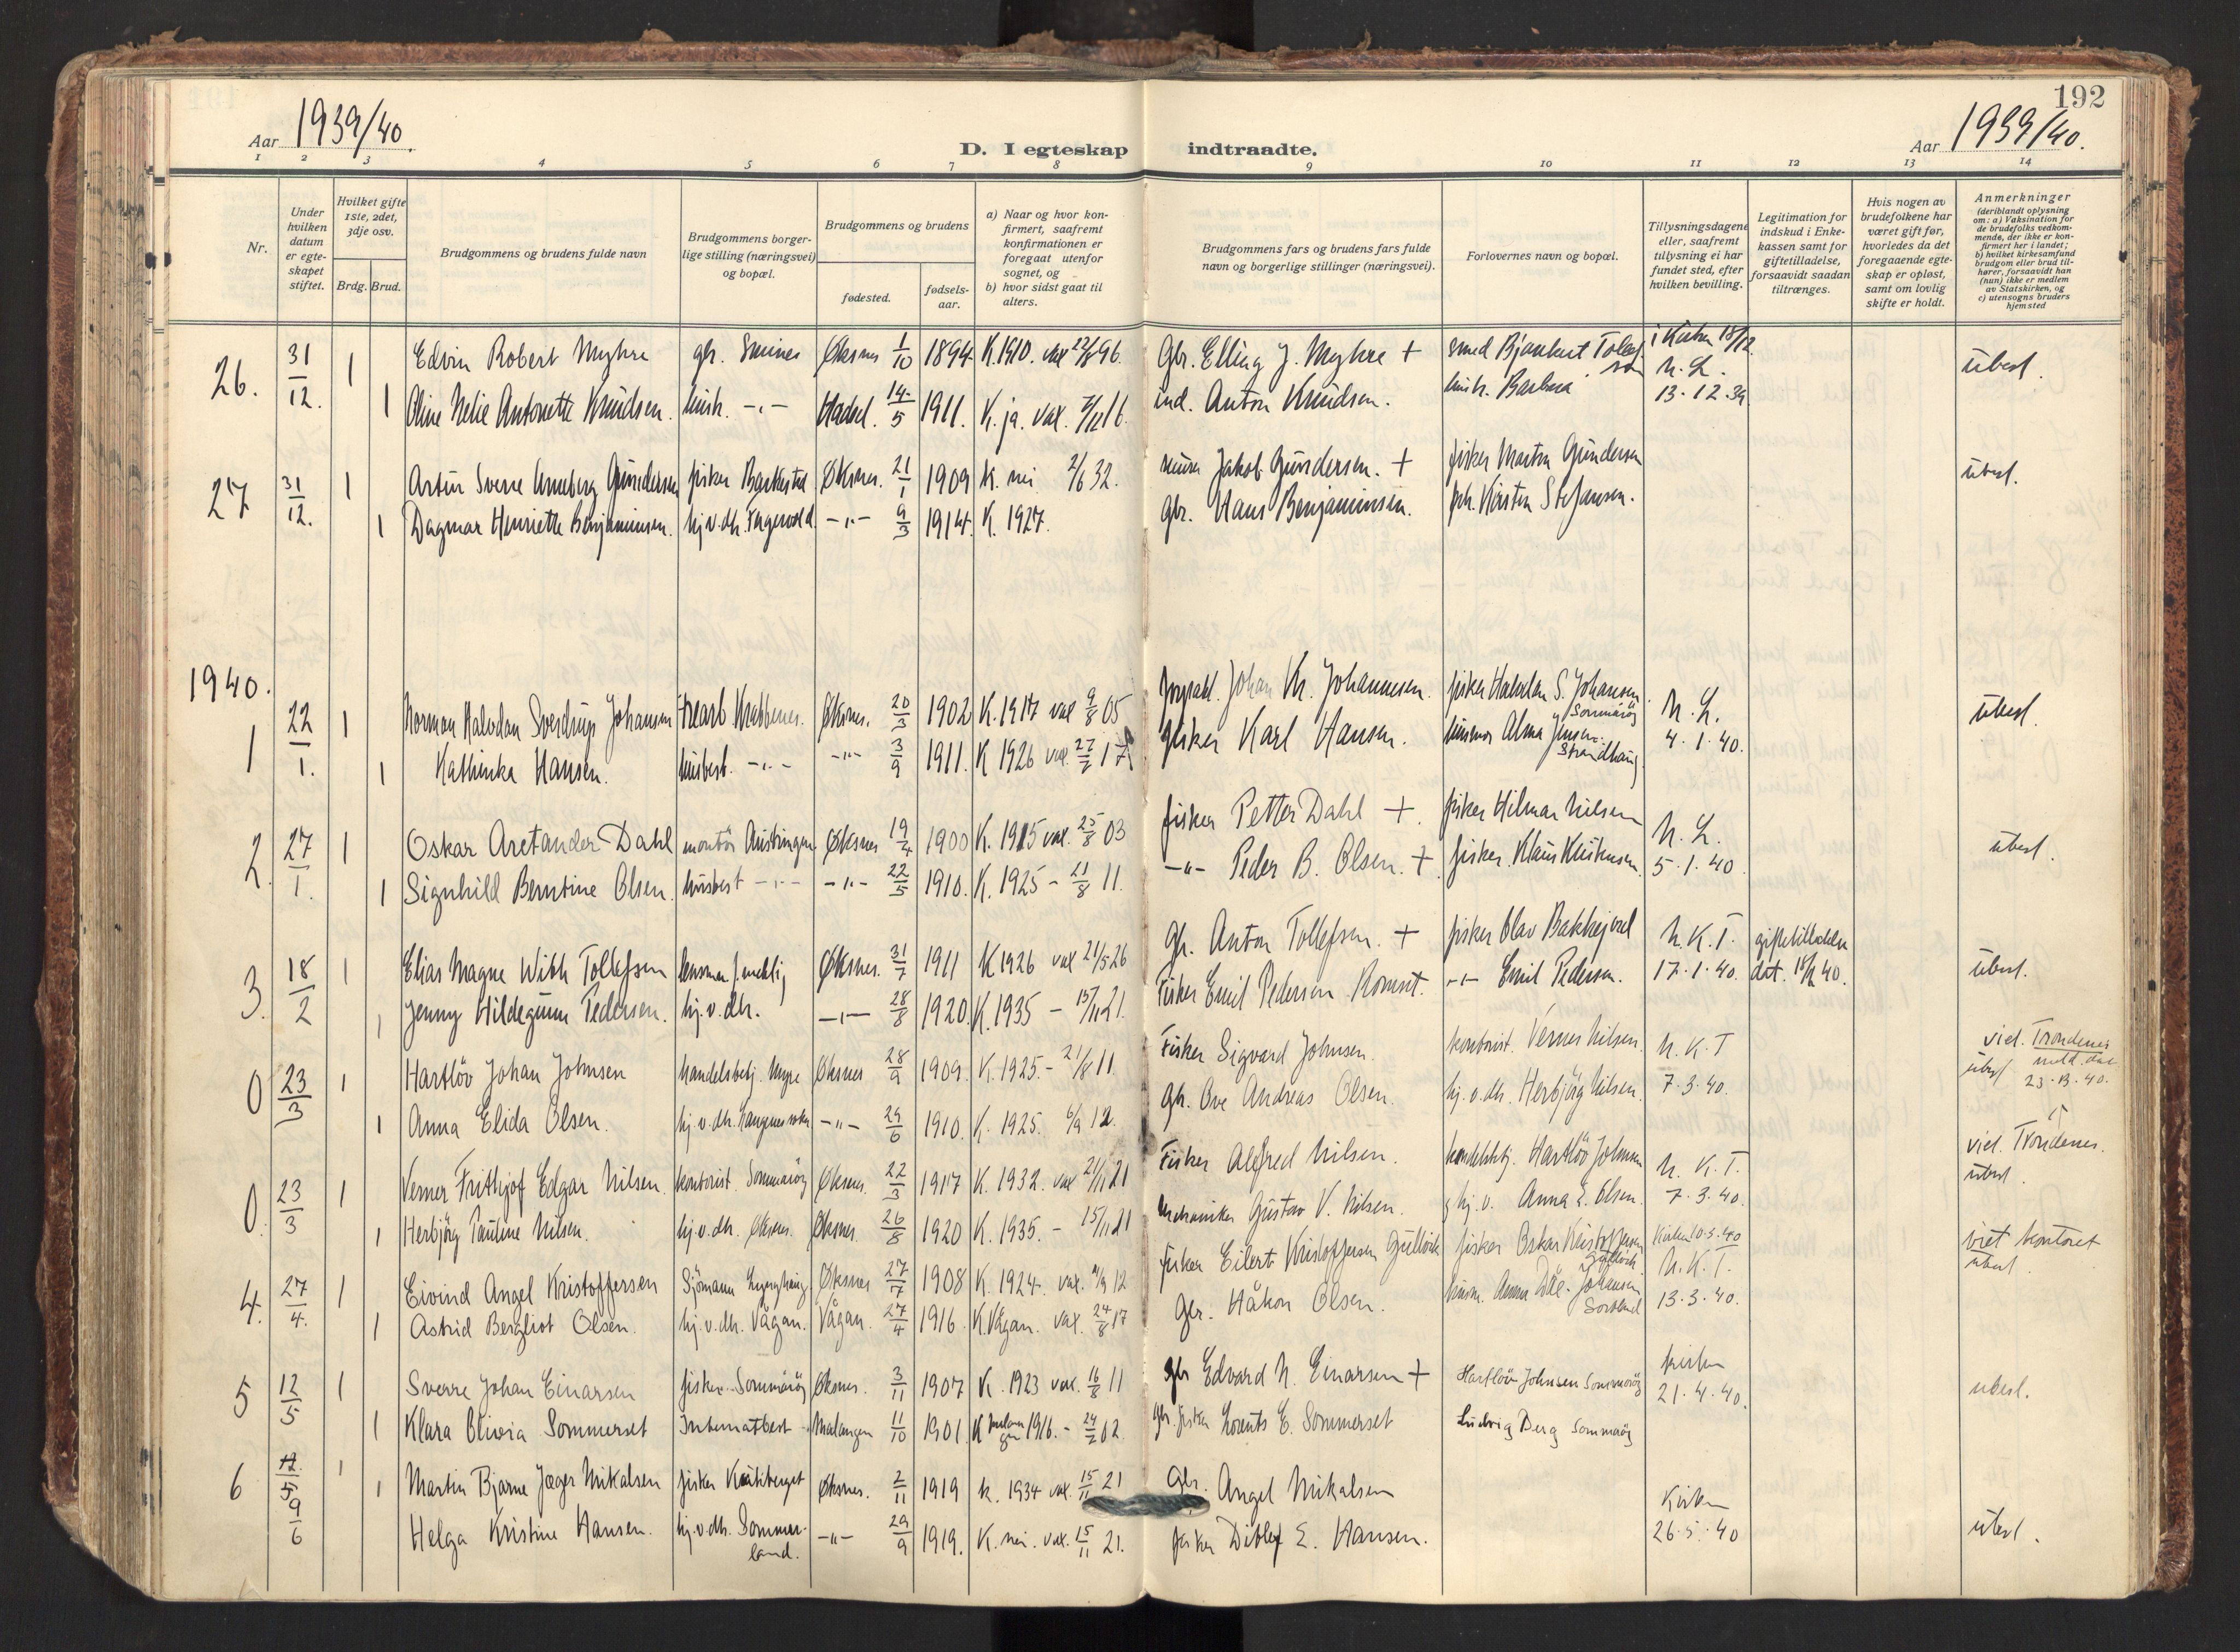 192
Aar 1939/40.
D. I egteskap indtraadte.
Aar 1939/40.
1 2 3 4 5 6 7 8 9 10 11 12 13 14
Nr.
Under hvilken datum er egteskapet stiftet.
Hvilket gifte 1ste, 2det, 3dje osv.
Brdg. Brud.
Brudgommens og brudens fulde navn
Brudgommens borgerlige stilling (næringsvei) og bopæl.
Brudgommens og brudens
fødested.
fødselsaar.
a) Naar og hvor konfirmert, saafremt konfirmationen er foregaat utenfor sognet, og
b) hvor sidst gaat til alters.
Brudgommens fars og brudens fars fulde navn og borgerlige stillinger (næringsvei).
Forlovernes navn og bopæl.
Tillysningsdagene eller, saafremt tillysning ei har fundet sted, efter hvilken bevilling.
Legitimation for indskud i Enkekassen samt for giftetilladelse, forsaavidt saadan tiltrænges.
Hvis nogen av brudefolkene har været gift før, hvorledes da det foregaaende egteskap er opløst, samt om lovlig skifte er holdt.
Anmerkninger
(deriblandt oplysning om: a) Vaksination for de brudefolks vedkommende, der ikke er konfirmert her i landet;
b) hvilket kirkesamfund brudgom eller brud tilhører, forsaavidt han (hun) ikke er medlem av Statskirken, og
c) utensogns bruders hjemsted
26. 31/12. 1 Edvin Robert Myhre gbr. Smines Øksnes 1/10 1894 K. 1910. vax 22/8 96. Gbr. Elling J. Myhre + smed Bjankert Tollefson i Kirken 18/12. ubesl.
1 Oline Nelie Antonette Knudsen. hush. -"- Hadsel. 14/5 1911. K. ja. vax. 16. ind. Anton Knudsen. hush. Barbra N. L. 13.12.39
27 31/12. 1 Artur Sverre Arneberg Gundersen fisker Barkestad Øksnes. 21/1 1909 K. nei 2/6 32. murer Jakob Gundersen. + fisker Martin Gundersen ubesl.
1 Dagmar Henriette Benjaminsen. hj.v.dh. Fagervold -"- 9/3 1914. K. 1927. gbr. Hans Benjaminsen. Kirsten Stefansen.
1940.
1 22/1. 1 Norman Halvdan Sverdrup Johansen Krabbenes. Øksnes. 20/3 1902 K. 1917 vax 9/8 05 forpakt. Johan Kr. Johannesen. fisker Halvdan S. Johansen Sommarøy N. L. ubesl.
1 Kathinka Hansen. husbest. -"- -"- 3/9 1911. K 1926 vax. 17 fisker Karl Hansen. husmor Alma Jensen Strandhaug 4.1.40.
2. 27/1. 1 Oskar Aretander Dahl montør Austringen Øksnes 19/4 1900 K. 1915 vax. 25/8 03 fisker Petter Dahl +. fisker Hilmar Nilsen N. L. ubesl.
1 Signhild Berntine Olsen. husbest -"- -"- 22/5 1910. K. 1925 - 21/8 11. -"- Peder B. Olsen. +. fisker Klaus 5.1.40
3. 18/2 1 Elias Magne Wibh Tollefsen lensman f.mektig Øksnes. 31/7 1911 K 1926 vax 21/5 26 gbr. Anton Tollefsen. + fisker Olav Bakkejord N. K. T. giftetilladelse ubesl.
1 Jenny Hildegunn Pedersen. hj.v.dh. -"- 28/8 1920. K. 1935 - 15/11 21. Fisker Emil Pedersen Romset. -"- Emil Pedersen. 17.1.40. dat. 40.
0 23/3 1 Hartløv Johan Johnsen handelsbetj. Myre Øksnes 28/9 1909. K. 1925. - 21/8 11 Fisker Sigvard Johnsen. kontorist. Verner Nilsen. N. K. T viel. Trondenes ubesl.
1 Anna Elida Olsen. hj.v.dh. -"- 29/6 1910. K. 1925. 6/9 12. gbr. Ove Andreas Olsen. hj.v.dh. Herbjørg Nilsen. 7.3.40.
0. 23/3 1 Verner Frithjof Edgar Nilsen. kontorist. Sommarøy Øksnes. 22/3 1917 K. 1932. vax 21/11 21 Fisker Alfred Nilsen. handelsbetj. Hartløv Johnsen N. K. T. viel. Trondenes. ubesl.
1 Herbjørg Pauline Nilsen. hj.v.dh. Øksnes. Øksnes. 26/8 1920 K. 1935. - 15/11 21 Mekaniker Gustav V. Nilsen. hj.v. Anna E. Olsen. 7.3.40.
4. 27/4. 1 Eivind Angel Kristoffersen Sjømann Øksnes 27/7 1908 K. 1924. vax. 4/9 12 fisker Eilert Kristoffersen Gulkvik fisker Oskar Kristoffersen Gulkvik Kirken 10.3.40 N. K. T. viet kontoret ubesl.
1 Astrid Bergliot Olsen. hj.v.dh. Vågan. Vågan. 27/4 1916. K. Vågan. vax. 24/8 17 gbr. Håkon Olsen. husm. Anna Johansen Sortland 13.3.40.
5 12/5 1 Sverre Johan Einarsen fisker Sommarøy Øksnes. 3/11 1907 K. 1923 vax. 16/8 11 gbr Edvard N. Einarsen + Hartløv Johnsen Sommarøy kirken 21.4.40. ubesl.
1 Klara Olivia Sommerset Internatbest. Malangen 11/10 1901. K Malangen 1916. - 24/2 02 gbr. fisker Lorents E. Sommerset Ludvig Berg Sommarøy
6 12/5 9/6 1 1 Martin Bjarne Jæger Mikalsen fisker Kråkberget Øksnes. 2/11 1919 K. 1934 vax. 15/11 21 Gbr. Angel Mikalsen Kirken
Helga Kristine Hansen. hj.v.dh. Sommerland. -"- 29/9 1919. K. nei. vax. 15/11 21. fisker Ditlef E. Hansen. 26.5.40 ubesl.